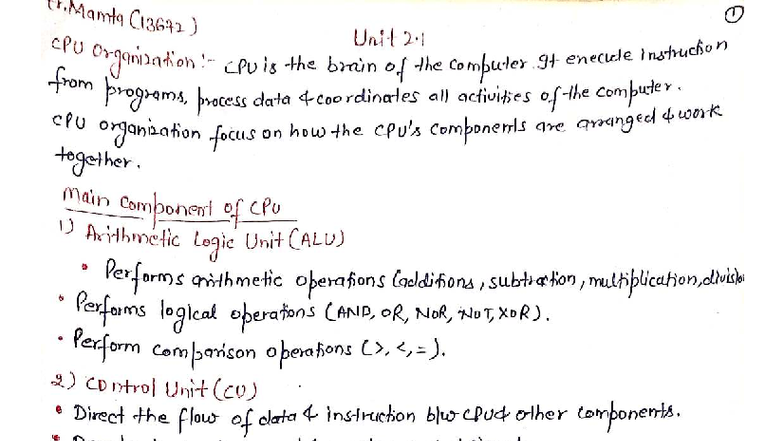 Er. Mamta (13672)
①
Unit 2.1
CPU Organization :- CPU is the brain of the computer. It enecute instruction
from programs, process data & coordinates all activities of the computer.
CPU organization focus on how the CPU's components are arranged & work
together.
Main Component of CPU
1) Arithmetic Logic Unit (ALU)
• Performs arithmetic operations (additions, subtraction, multiplication, division
• Performs logical operations (AND, OR, NOR, NOT, XOR).
• Perform comparison operations (>, <, =).
2) Control Unit (CU)
• Direct the flow of data & instruction b/w CPU & other components.